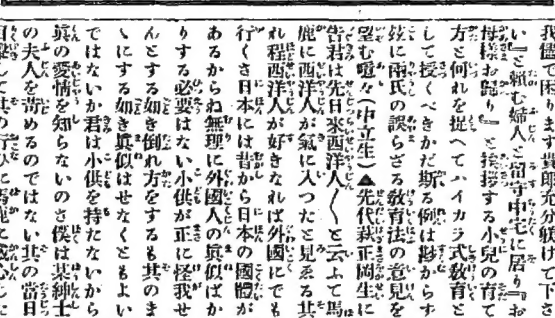 我儘で困ります貴郎充分躾けて下さ
い』と頼む婦人と留守中宅に居り『お
母樣お歸り』と挨拶する小兒の育て
方と何れを捉へてハイカラ式敎育と
して授くべきかだ斯る例は尠からず
玆に兩氏の誤らざる敎育法の意見を
望む噫々(中立生)▲先代萩正岡生に
告君は先日來西洋人〱と云ふて馬
鹿に西洋人が氣に入つたと見ゑる其
れ程西洋人が好きなれば外國にでも
行くさ日本には昔から日本の國體が
あるからね無理に外國人の眞似ばか
りする必要はない小供が正に怪我せ
んとする如き倒れ方をするも其のま
ゝにする如き眞似はせなくともよい
ではないか君は小供を持たないから
眞の愛情を知らないのさ僕は某紳士
の夫人を苦めるのではない其の當日